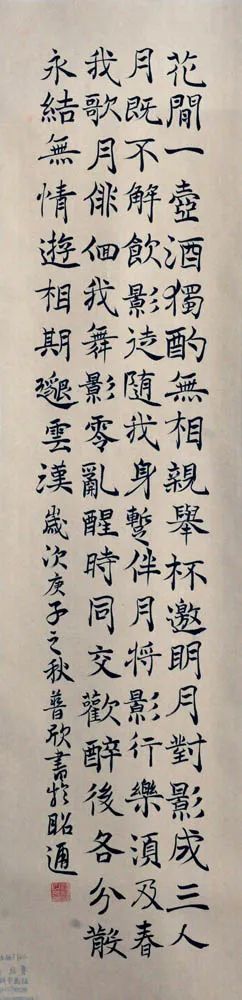 花間一壺酒獨酌無相親舉杯邀明月對影成三人
月既不解飲影徒隨我身暫伴月將影行樂須及春
我歌月俳佪我舞影零亂醒時同交歡醉後各分散
永結無情遊相期邈雲漢 歲次庚子之秋普欣書於昭通